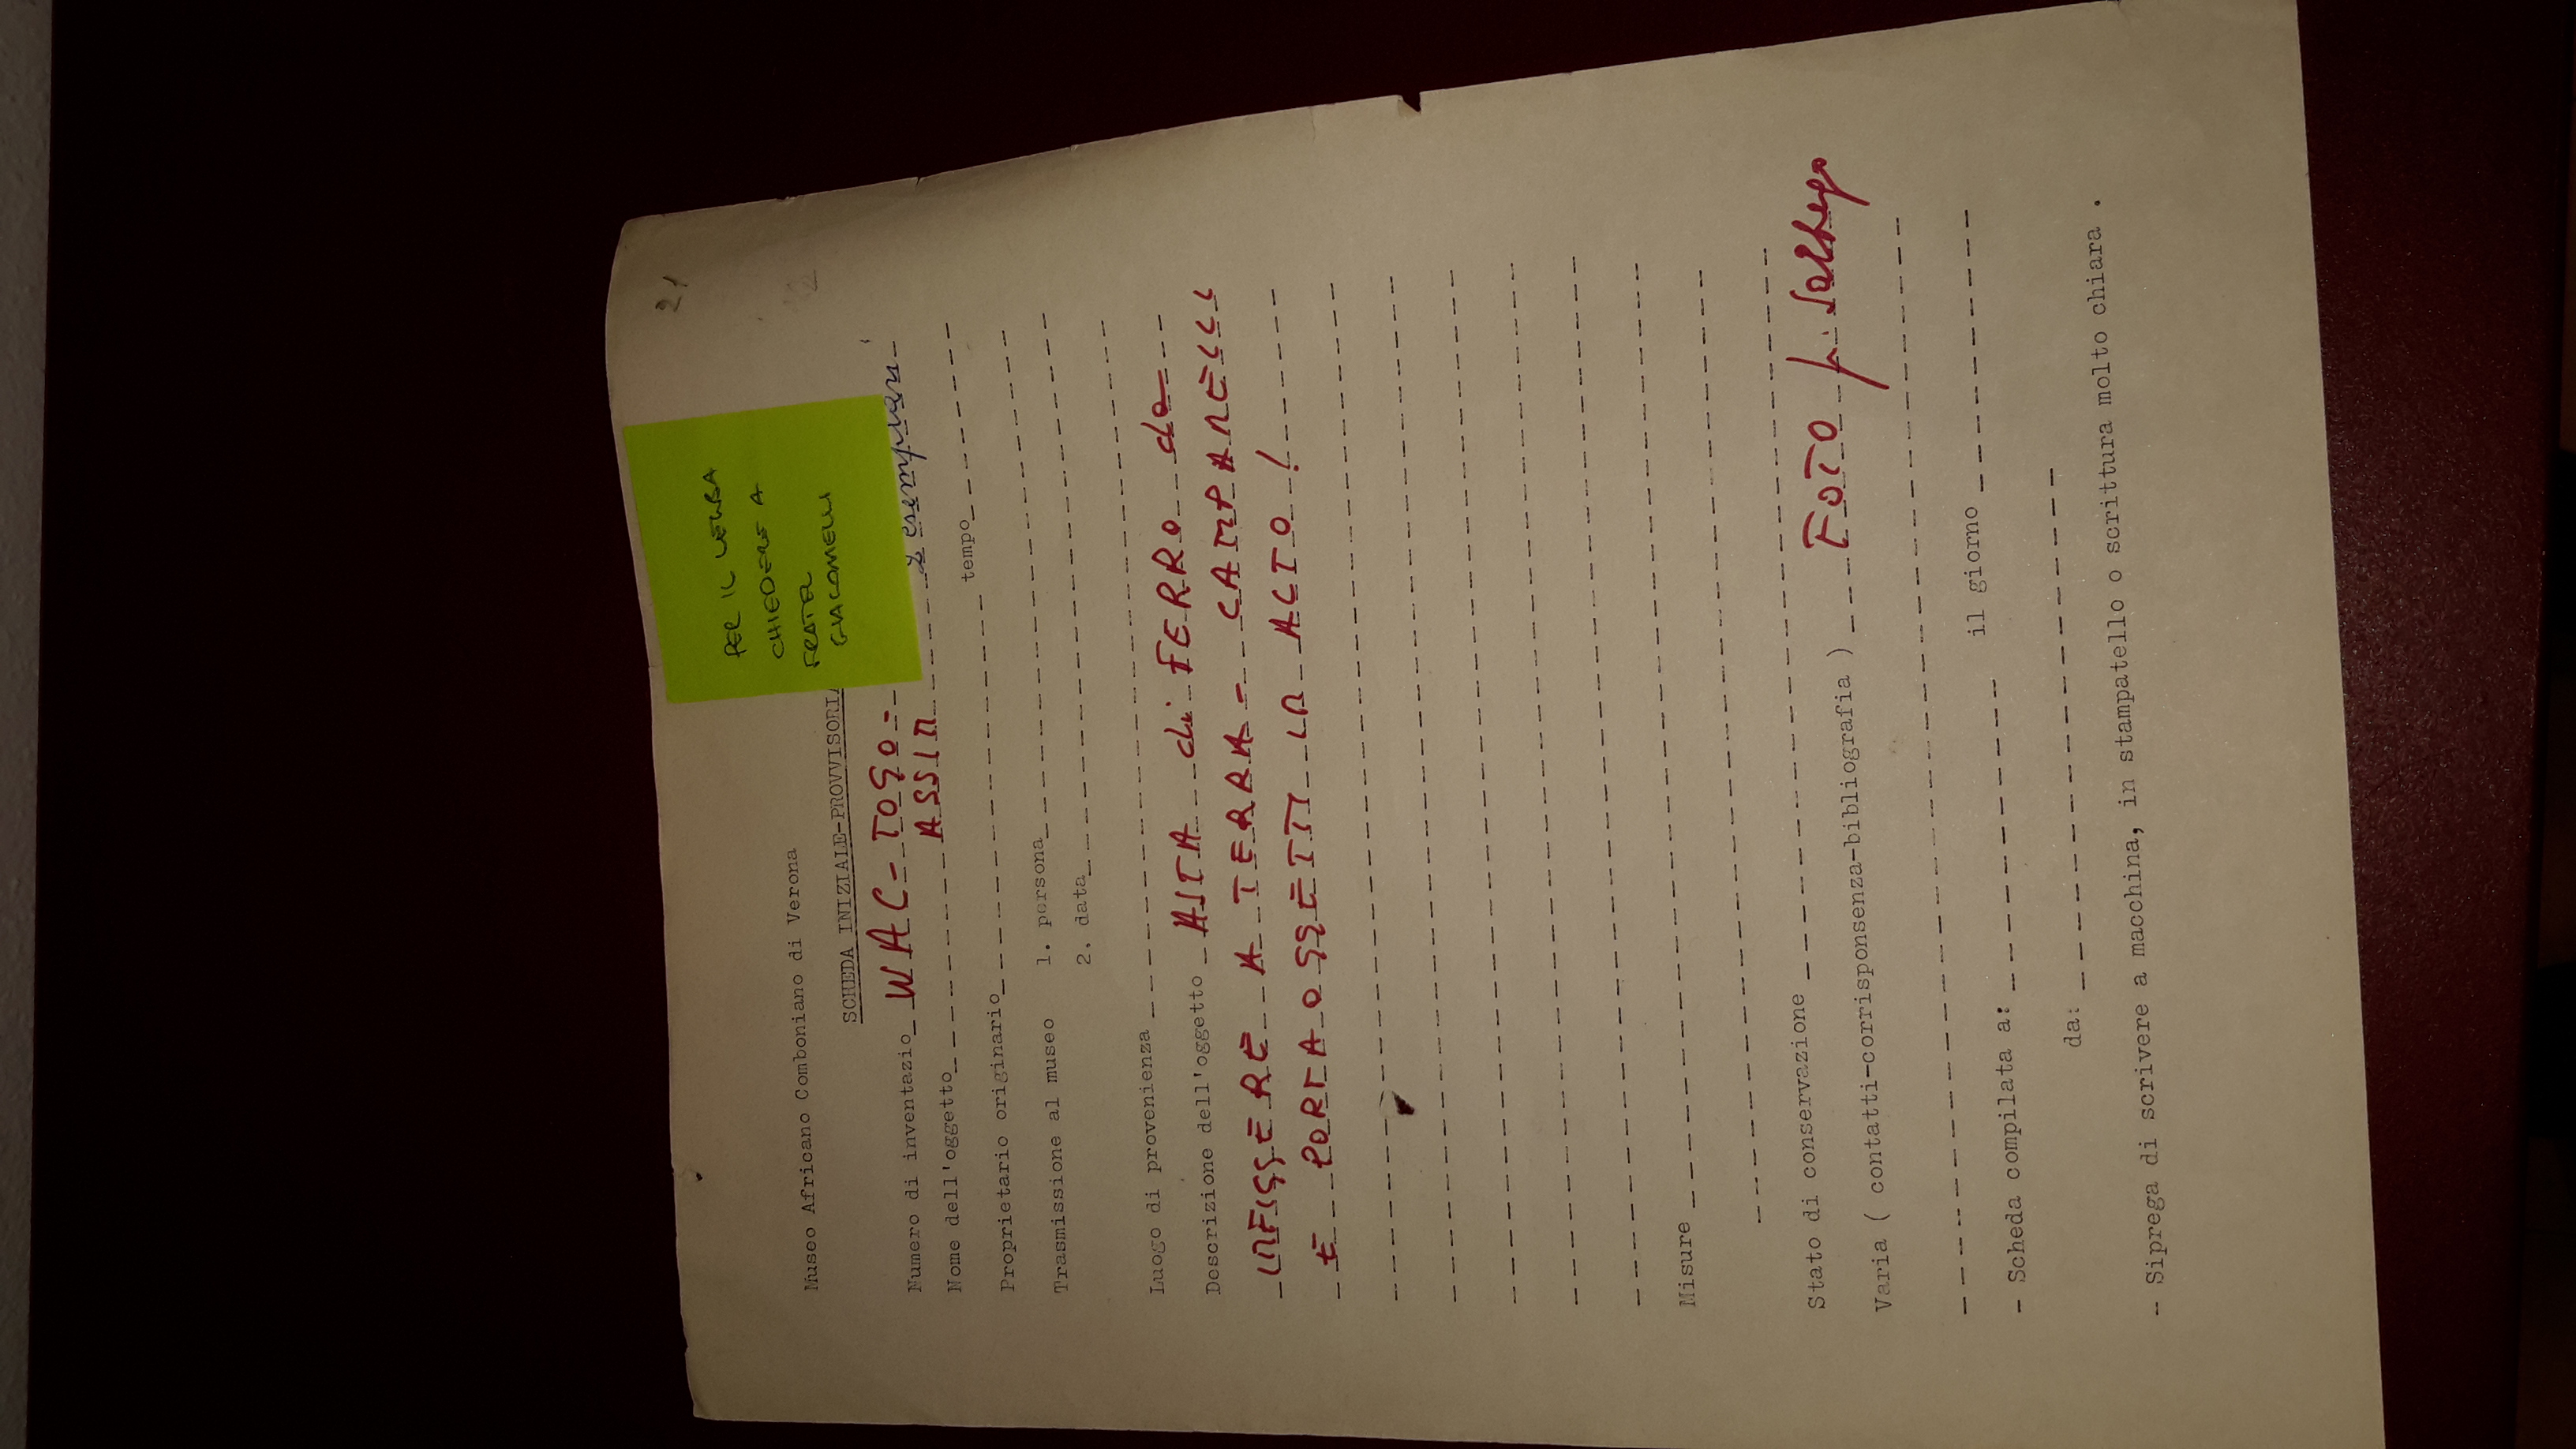 21
PER IL
CHIEDERE A
FRATEL
GIACOMELLI
Museo Africano Comboniano di Verona
SCHEDA INIZIALE-PROVVISORIA
Numero di inventazio WAC - TOGO =
Nome dell'oggetto ASSIN 2 esemplari
Proprietario originario tempo
Trasmissione al museo 1. persona
2. data
Luogo di provenienza
Descrizione dell'oggetto ASTA di FERRO da
INFIGGERE A TERRA = CAMPANELLI
E PORTA OGGETTI IN ALTO !
Misure
Stato di conservazione
Varia ( contatti-corrisponsenza-bibliografia ) FOTO
- Scheda compilata a: il giorno
da:
-- Siprega di scrivere a macchina, in stampatello o scrittura molto chiara .